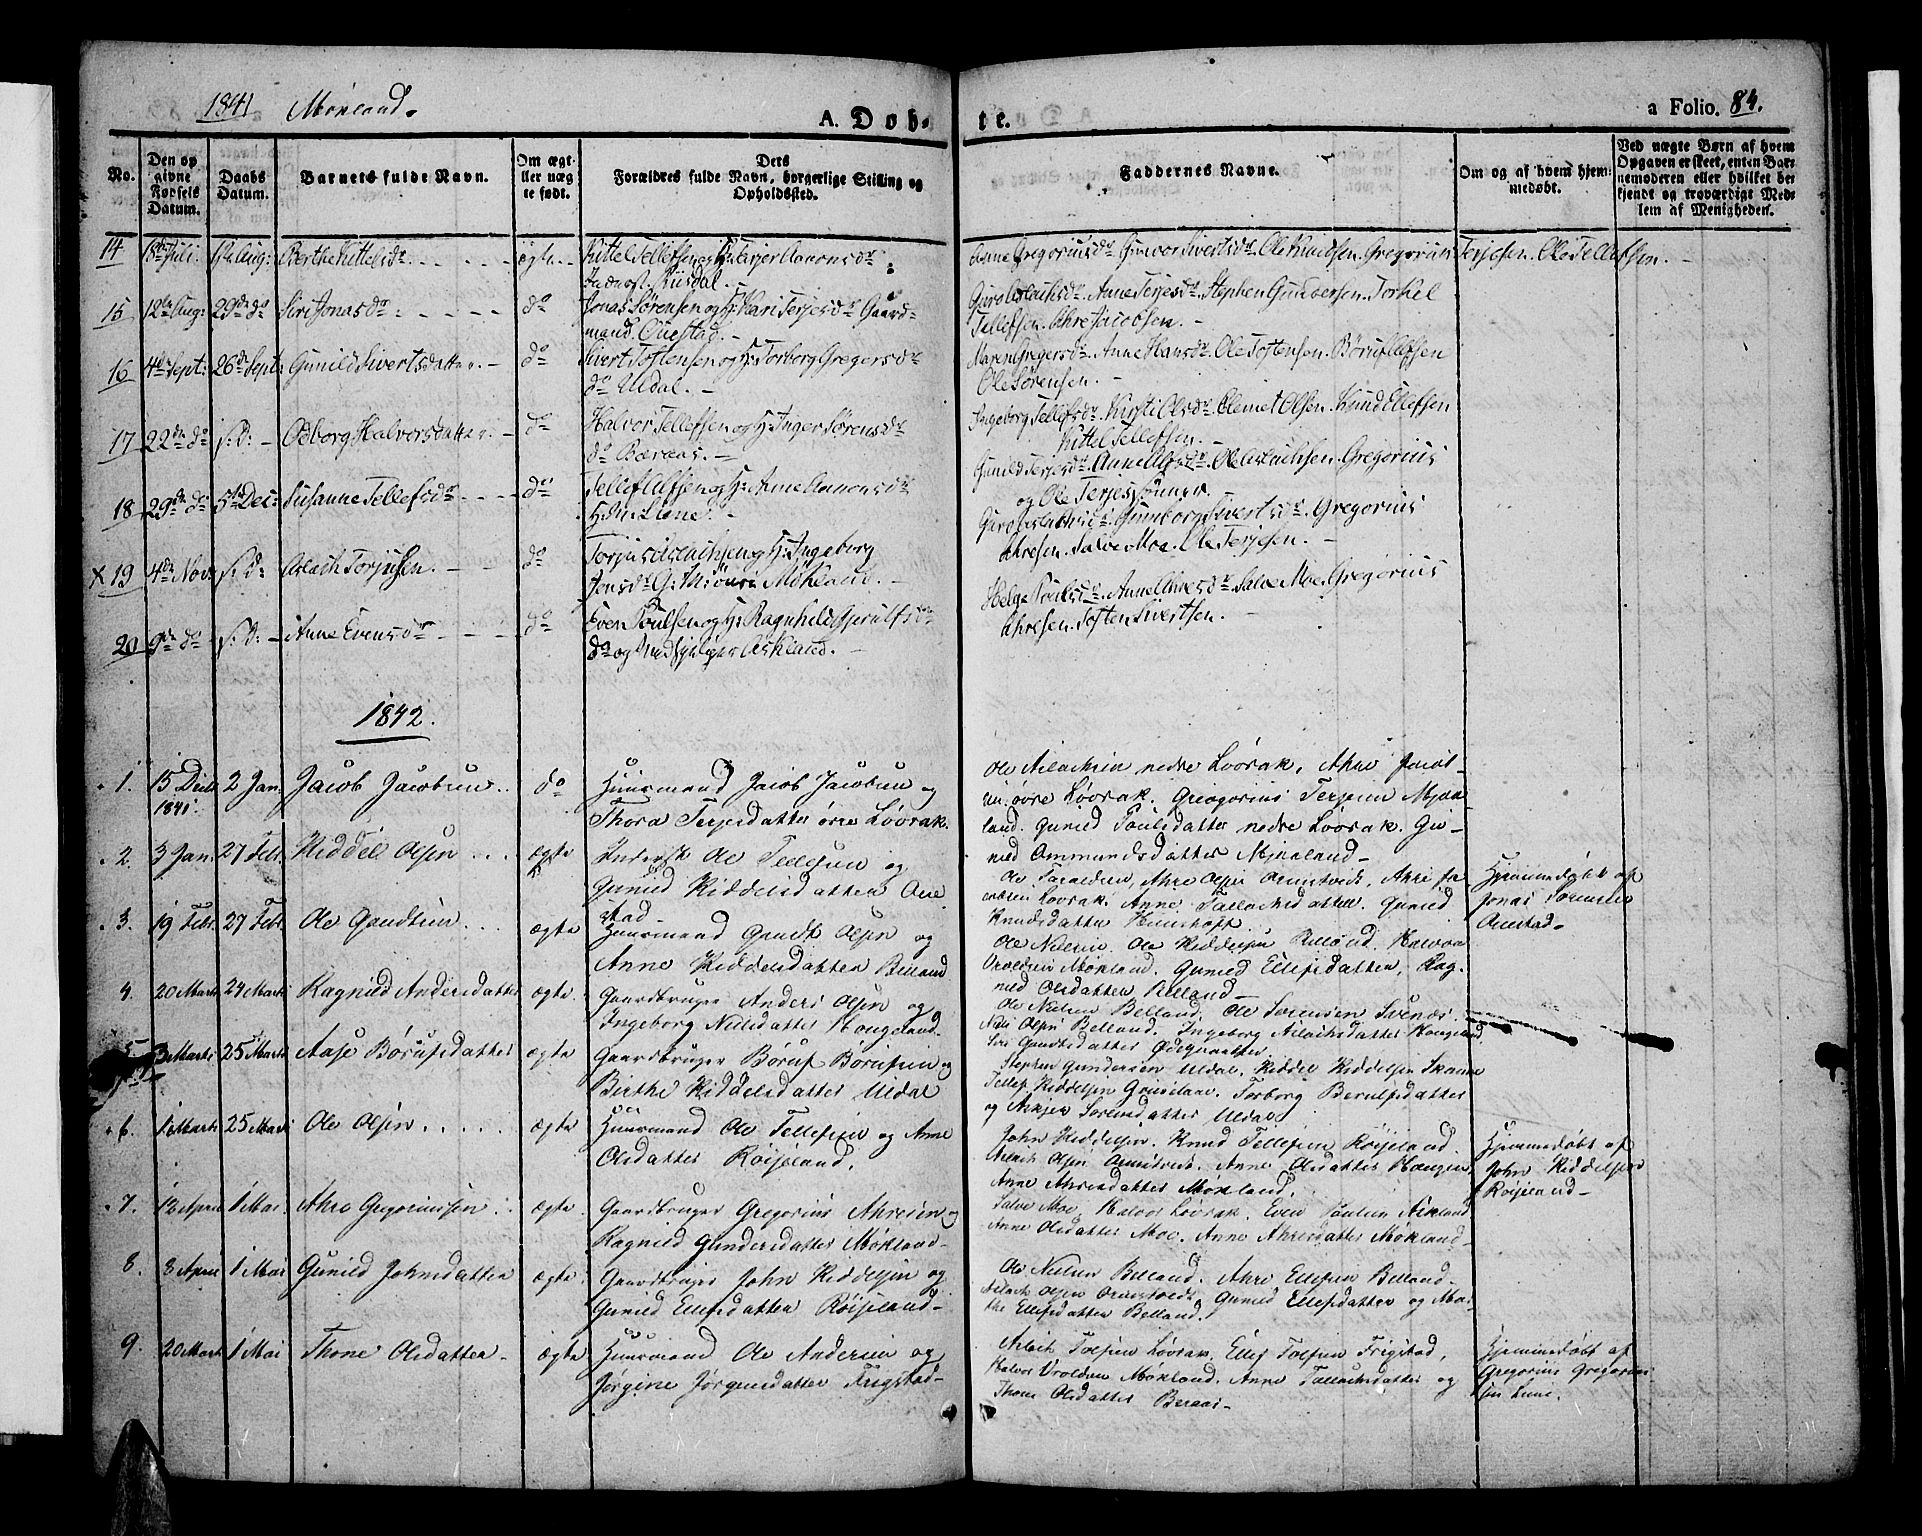 1841 Mökland.
A. Dob-
te.
a Folio. 84.
No.
Den op
givne
Fødsels
Datum.
Daabs
Datum.
Barnets fulde Navn.
Om ægt
ller uæg
te født.
Dets
Forældres fulde Navn, borgerlige Stilling og
Opholdssted.
Faddernes Navne.
Om og af hvem hjem-
medøbt.
Ved uægte Børn af hvem
Opgaven er skeet, enten Bar-
nemoderen eller hvilket be-
kjendt og troværdigt Med-
lem af Menigheden.
14 18de Juli. 1ste Aug: Berthe Kittelsdr ægte Kittel Tellefsen og H: Terjer Aanonsdr
Riisdal.
Anne Gregoriusdr Gunvor Sivertsdr Ole Knudsen. Gregorius Terjesen. Ole Tellefsen.
15 12te Aug: 29de do Siri Jonasdr do Jonas Sørensen og H: Kari Terjesdr Gaard-
mand. Ouestad.
Guro Aslachsdr Anne Terjesdr Stephen Gundersen. Torkel
Tellefsen. Ahre Jacobsen.
16 4de Sept: 26de Sept: Gunild Sivertsdatter. do Sivert Tostensen og H: Torborg Gregersdr
do Uldal.
Maren Gregersdr Anne Hansdr Ole Tostensen. Børuf Ellefsen
Ole Sørensen.
17 22de do s: D: Odborg Halvorsdatter do Halvor Tellefsen og H: Inger Sørensdr
do Beraas.
Ingeborg Tellefsdr Kirsti Olsdr Clemet Olsen. Knud Ellefsen
Kittel Tellefsen.
18 29de do 5te Dec: Susanne Tellefsdr do Tellef Olsen og H: Anne Aanonsdr
Gunild Terjesdr Anne Olsdr Ole Aslachsen. Gregorius
og Ole Terjessønner.
x 19 4de Novr s: d: Aslach Torjusen. do Torjus Aslachsen og H: Ingeborg
Jensdr Mökland.
Guro Aslachsdr Gunborg Sivertsdr Gregorius
Ahresen. Salve Moe. Ole Terjesen.
20 9de do s: d: Anne Evensdr do Even Poulsen og H: Ragnhild Gjerulfsdr
do og Askland.
Helge Poulsdr Anne Ahresdr Salve Moe. Gregorius
Ahresen. Tosten Sivertsen.
1842.
1. 15 Decbr 1841. 2 Jan. Jacob Jacobsen do Huusmand Jacob Jacobsen og
Thora Terjesdatter øvre Lövrak.
Ole Aslachsen nedre Lövrak, Ahre Jacob-
sen øvre Lövrak. Gregorius Terjesen Mjaa-
land. Gunild Poulsdatter nedre Lövrak. Gu-
nild Ommundsdatter Mjaaland
2. 3 Jan. 27 Febr. Kiddel Olsen ægte Inderst Ole Tellefsen og
Gunild Kiddelsdatter Oue
stad
Ole Taraldsen, Ahre Olsen Ormstveds, Ahre Ja
cobsen Lövrak. Anne Tallachsdatter. Gunild
Knudsdatter
Hjemmedøbt af
Jonas Sørensen
Ouestad
3. 19 Febr. 27 Febr. Ole Gundtsen ægte Huusmand Gundt Olsen og
Anne Kiddelsdatter Belland
Ole Nielsen. Ole Kiddelsen Halvor
Uroldsen Mökland. Gunild Ellefsdatter, Rag-
nild Olsdatter Belland
4. 20 Marts 24 Marts Ragnild Andersdatter ægte Gaardbruger Anders Olsen og
Ingeborg Nielsdatter Haugeland
Ole Nielsen Belland, Ole Sørensen Svenes.
Niels Olsen Belland. Ingeborg Aslachsdatter Haugeland,
Siri Gundtsdatter Ødegaarden.
5. 3 Marts 25 Marts Aase Børufsdatter ægte Gaardbruger Børuf Børufsen og
Birthe Kiddelsdatter Uldal
Stephen Gundersen Uldal, Kiddel Kiddelsen
Tellef Kiddelsen Torborg Berulfsdatter
og Sørensdatter Uldal
6. 1 Marts 25 Marts Ole Olsen ægte Huusmand Ole Tellefsen og Anne
Olsdatter Røiseland.
John Kiddelsen. Knud Tellefsen Røiseland.
Aslach Olsen Ormstveds. Anne Olsdatter Haugen,
Anne Ahresdatter Mökland.
Hjemmedøbt af
John Kiddelsen
Røiseland
7. 12 April 1 Mai Ahre Gregoriussen ægte Gaardbruger Gregorius Ahresen og
Ragnild Gundersdatter Mökland
Salve Moe, Halvor Lövrak. Even Poulsen Askland
Anne Olsdatter Moe. Anne Ahresdatter Mökland
8. 8 April 1 Mai Gunild Johnsdatter ægte Gaardbruger John Kiddelsen og
Gunild Ellefsdatter Røiseland
Ole Nielsen Belland, Ahre Ellefsen Belland
Aslach Olsen Ormstveds, Gunild Ellefsdatter og Mar-
the Ellefsdatter Belland.
9. 20 Marts 1 Mai Thone Olsdatter ægte Huusmand Ole Andersen og
Jørgine Jørgensdatter Frigstad
Aslach Tolfsen Lövrak, Ellef Tolfsen Frigstad,
Halvor Uroldsen Mökland, Anne Tallachsdatter og
Thone Olsdatter Beraas
Hjemmedøbt af
Gregorius Gregorius
sen Lien